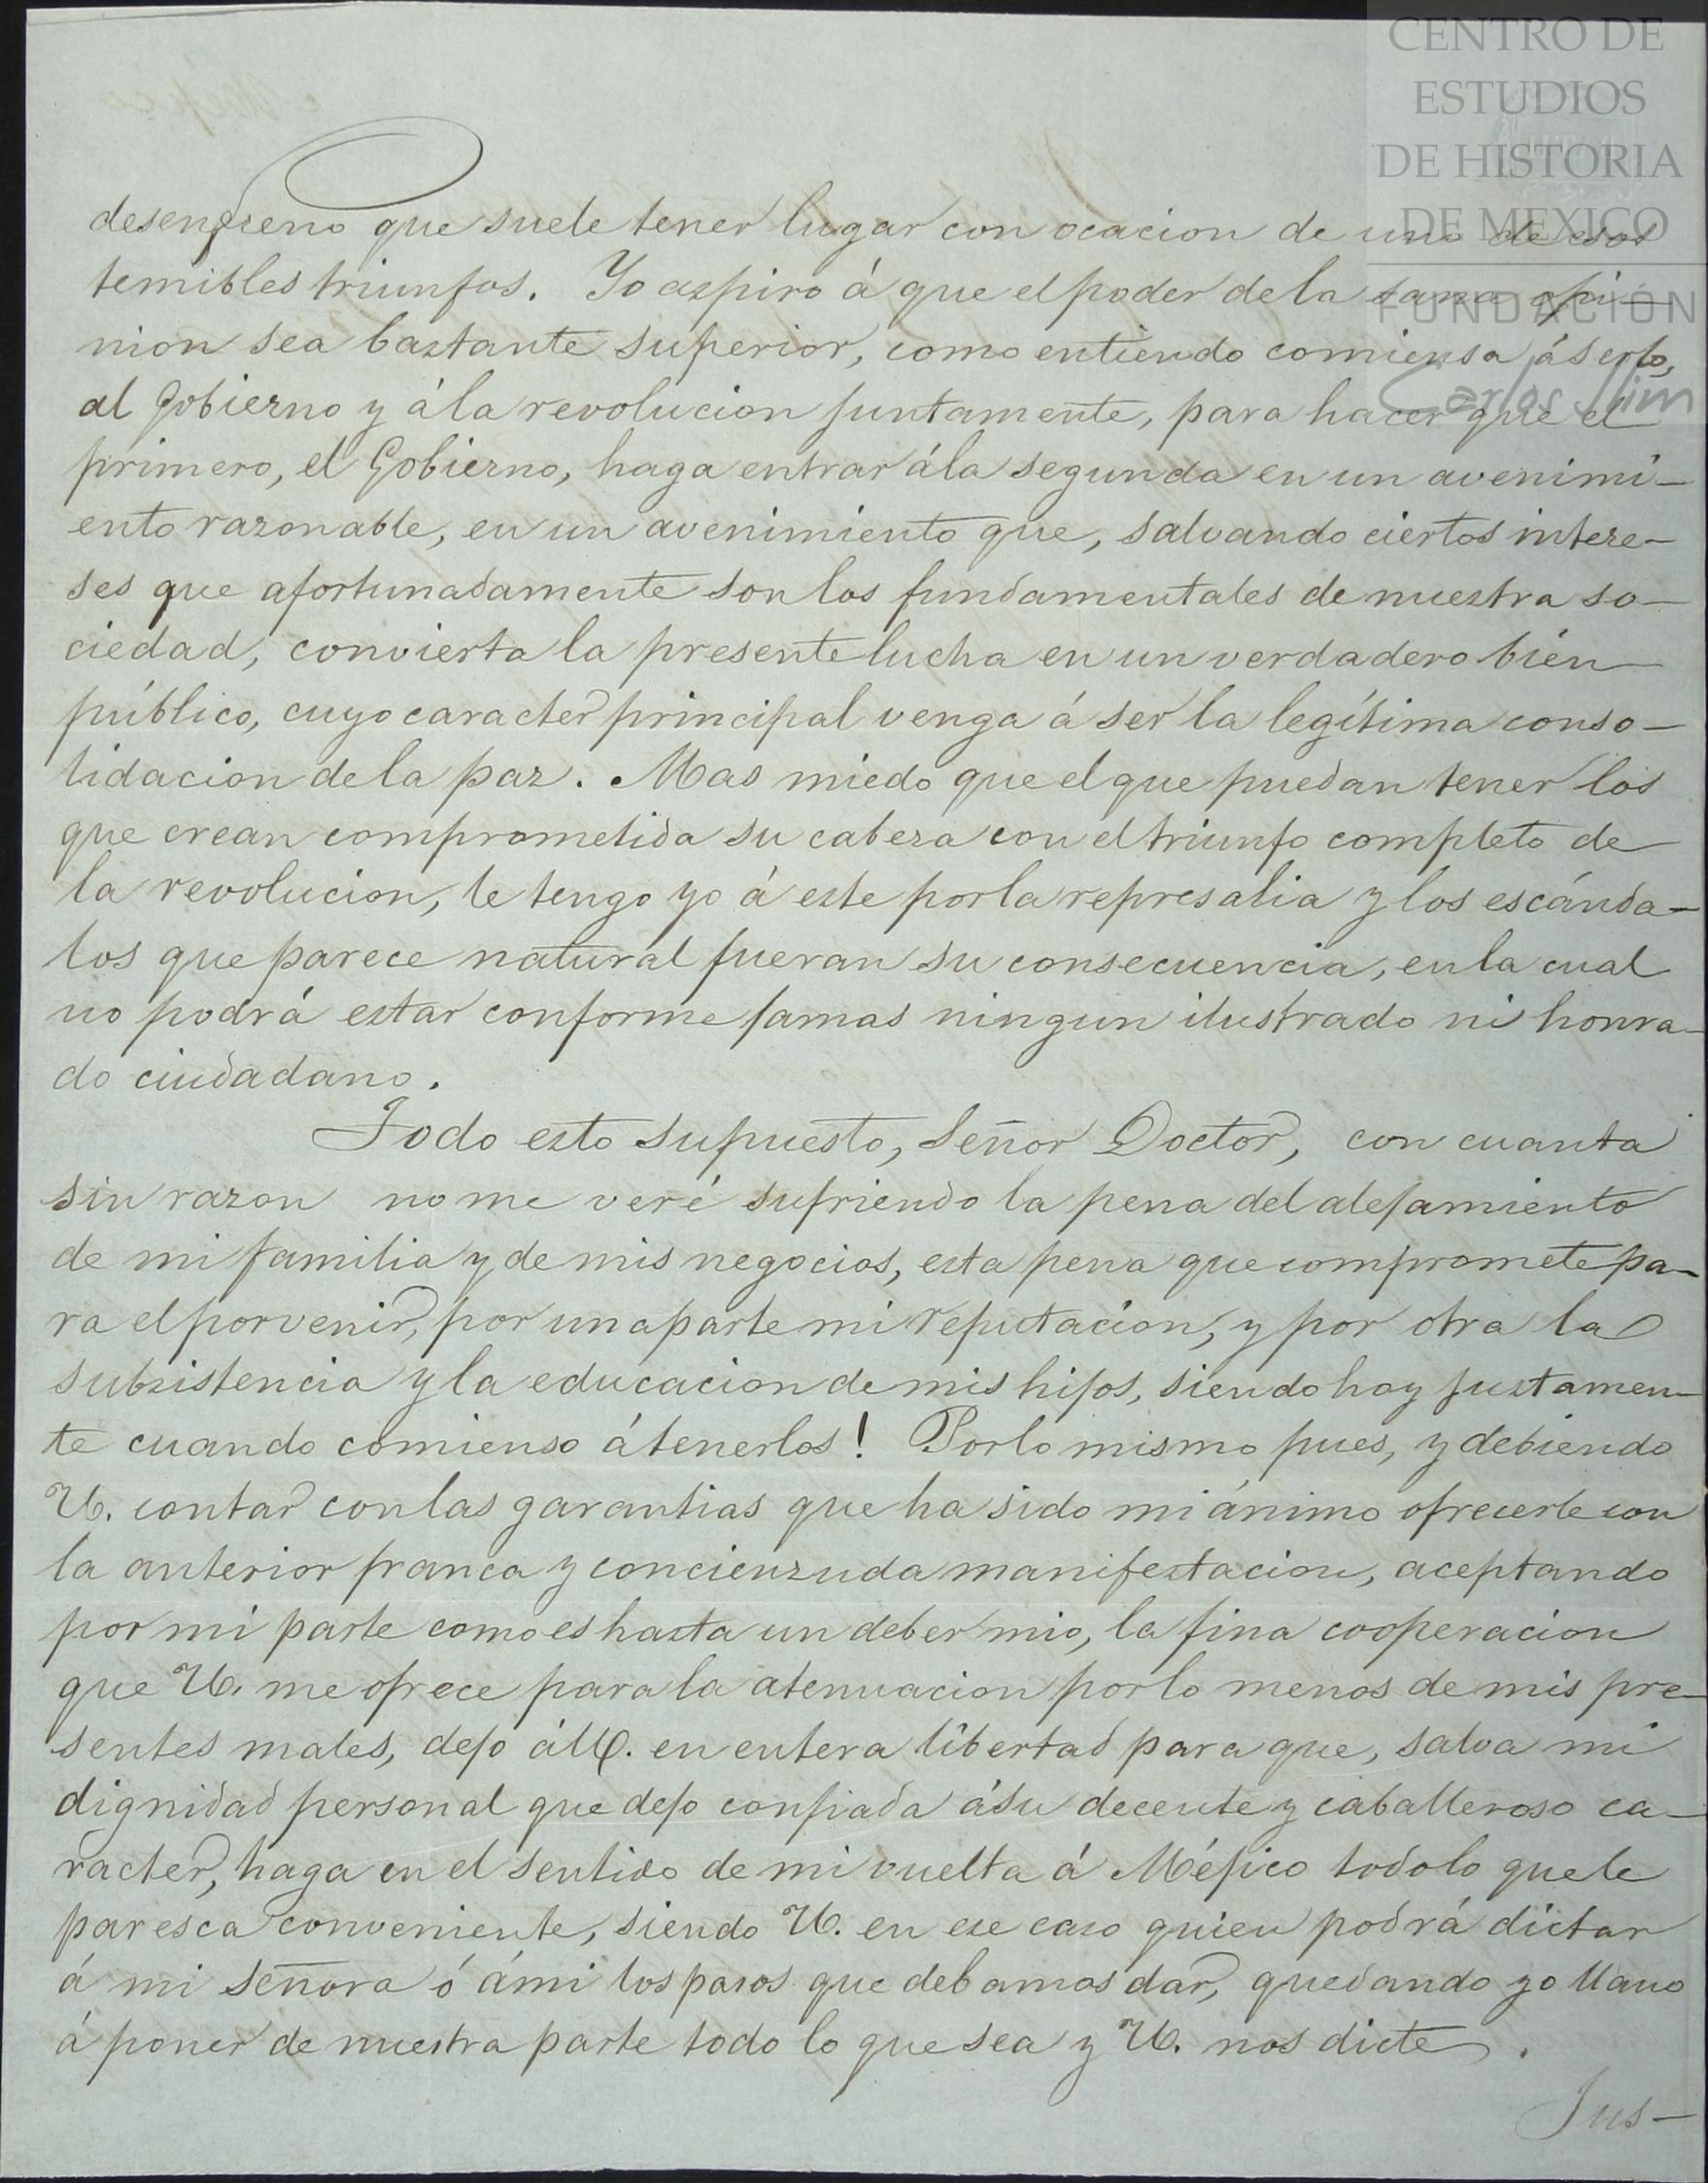 CENTRO DE
ESTUDIOS
DE HISTORIA
DE MEXICO
FUNDACIÓN
Carlos Slim
desenfreno que suele tener lugar con ocacion de uno de esos
temibles triunfos. Yo aspiro á que el poder de la sana opi-
nion sea bastante superior, como entiendo comiensa á serlo,
al Gobierno y á la revolucion juntamente, para hacer que el
primero, el Gobierno, haga entrar á la segunda en un avenimi-
ento razonable, en un avenimiento que, salvando ciertos intere-
ses que afortunadamente son los fundamentales de nuestra so-
ciedad, convierta la presente lucha en un verdadero bien
público, cuyo caracter principal venga á ser la legítima conso-
lidacion de la paz. Mas miedo que el que puedan tener los
que crean comprometida su cabeza con el triunfo completo de
la revolucion, le tengo yo á este por la represalia y los escánda-
los que parece natural fueran su consecuencia, en la cual
no podrá estar conforme jamas ningun ilustrado ni honra-
do ciudadano.
Todo esto supuesto, Señor Doctor, con cuanta
sin razon no me veré sufriendo la pena del alejamiento
de mi familia y de mis negocios, esta pena que compromete pa-
ra el porvenir, por una parte mi reputacion, y por otra la
subsistencia y la educacion de mis hijos, siendo hoy justamen-
te cuando comienso á tenerlos! Por lo mismo pues, y debiendo
U. contar con las garantias que ha sido mi ánimo ofrecerle con
la anterior franca y concienzuda manifestacion, aceptando
por mi parte como es hasta un deber mio, la fina cooperacion
que U. me ofrece para la atenuacion por lo menos de mis pre-
sentes males, dejo á U. en entera libertad para que, salva mi
dignidad personal que dejo confiada á su decente y caballeroso ca-
racter, haga en el sentido de mi vuelta á Méjico todo lo que le
paresca conveniente, siendo U. en ese caso quien podrá dictar
á mi señora ó á mi los pasos que debamos dar, quedando yo llano
á poner de nuestra parte todo lo que sea y U. nos dicte.
Jus-